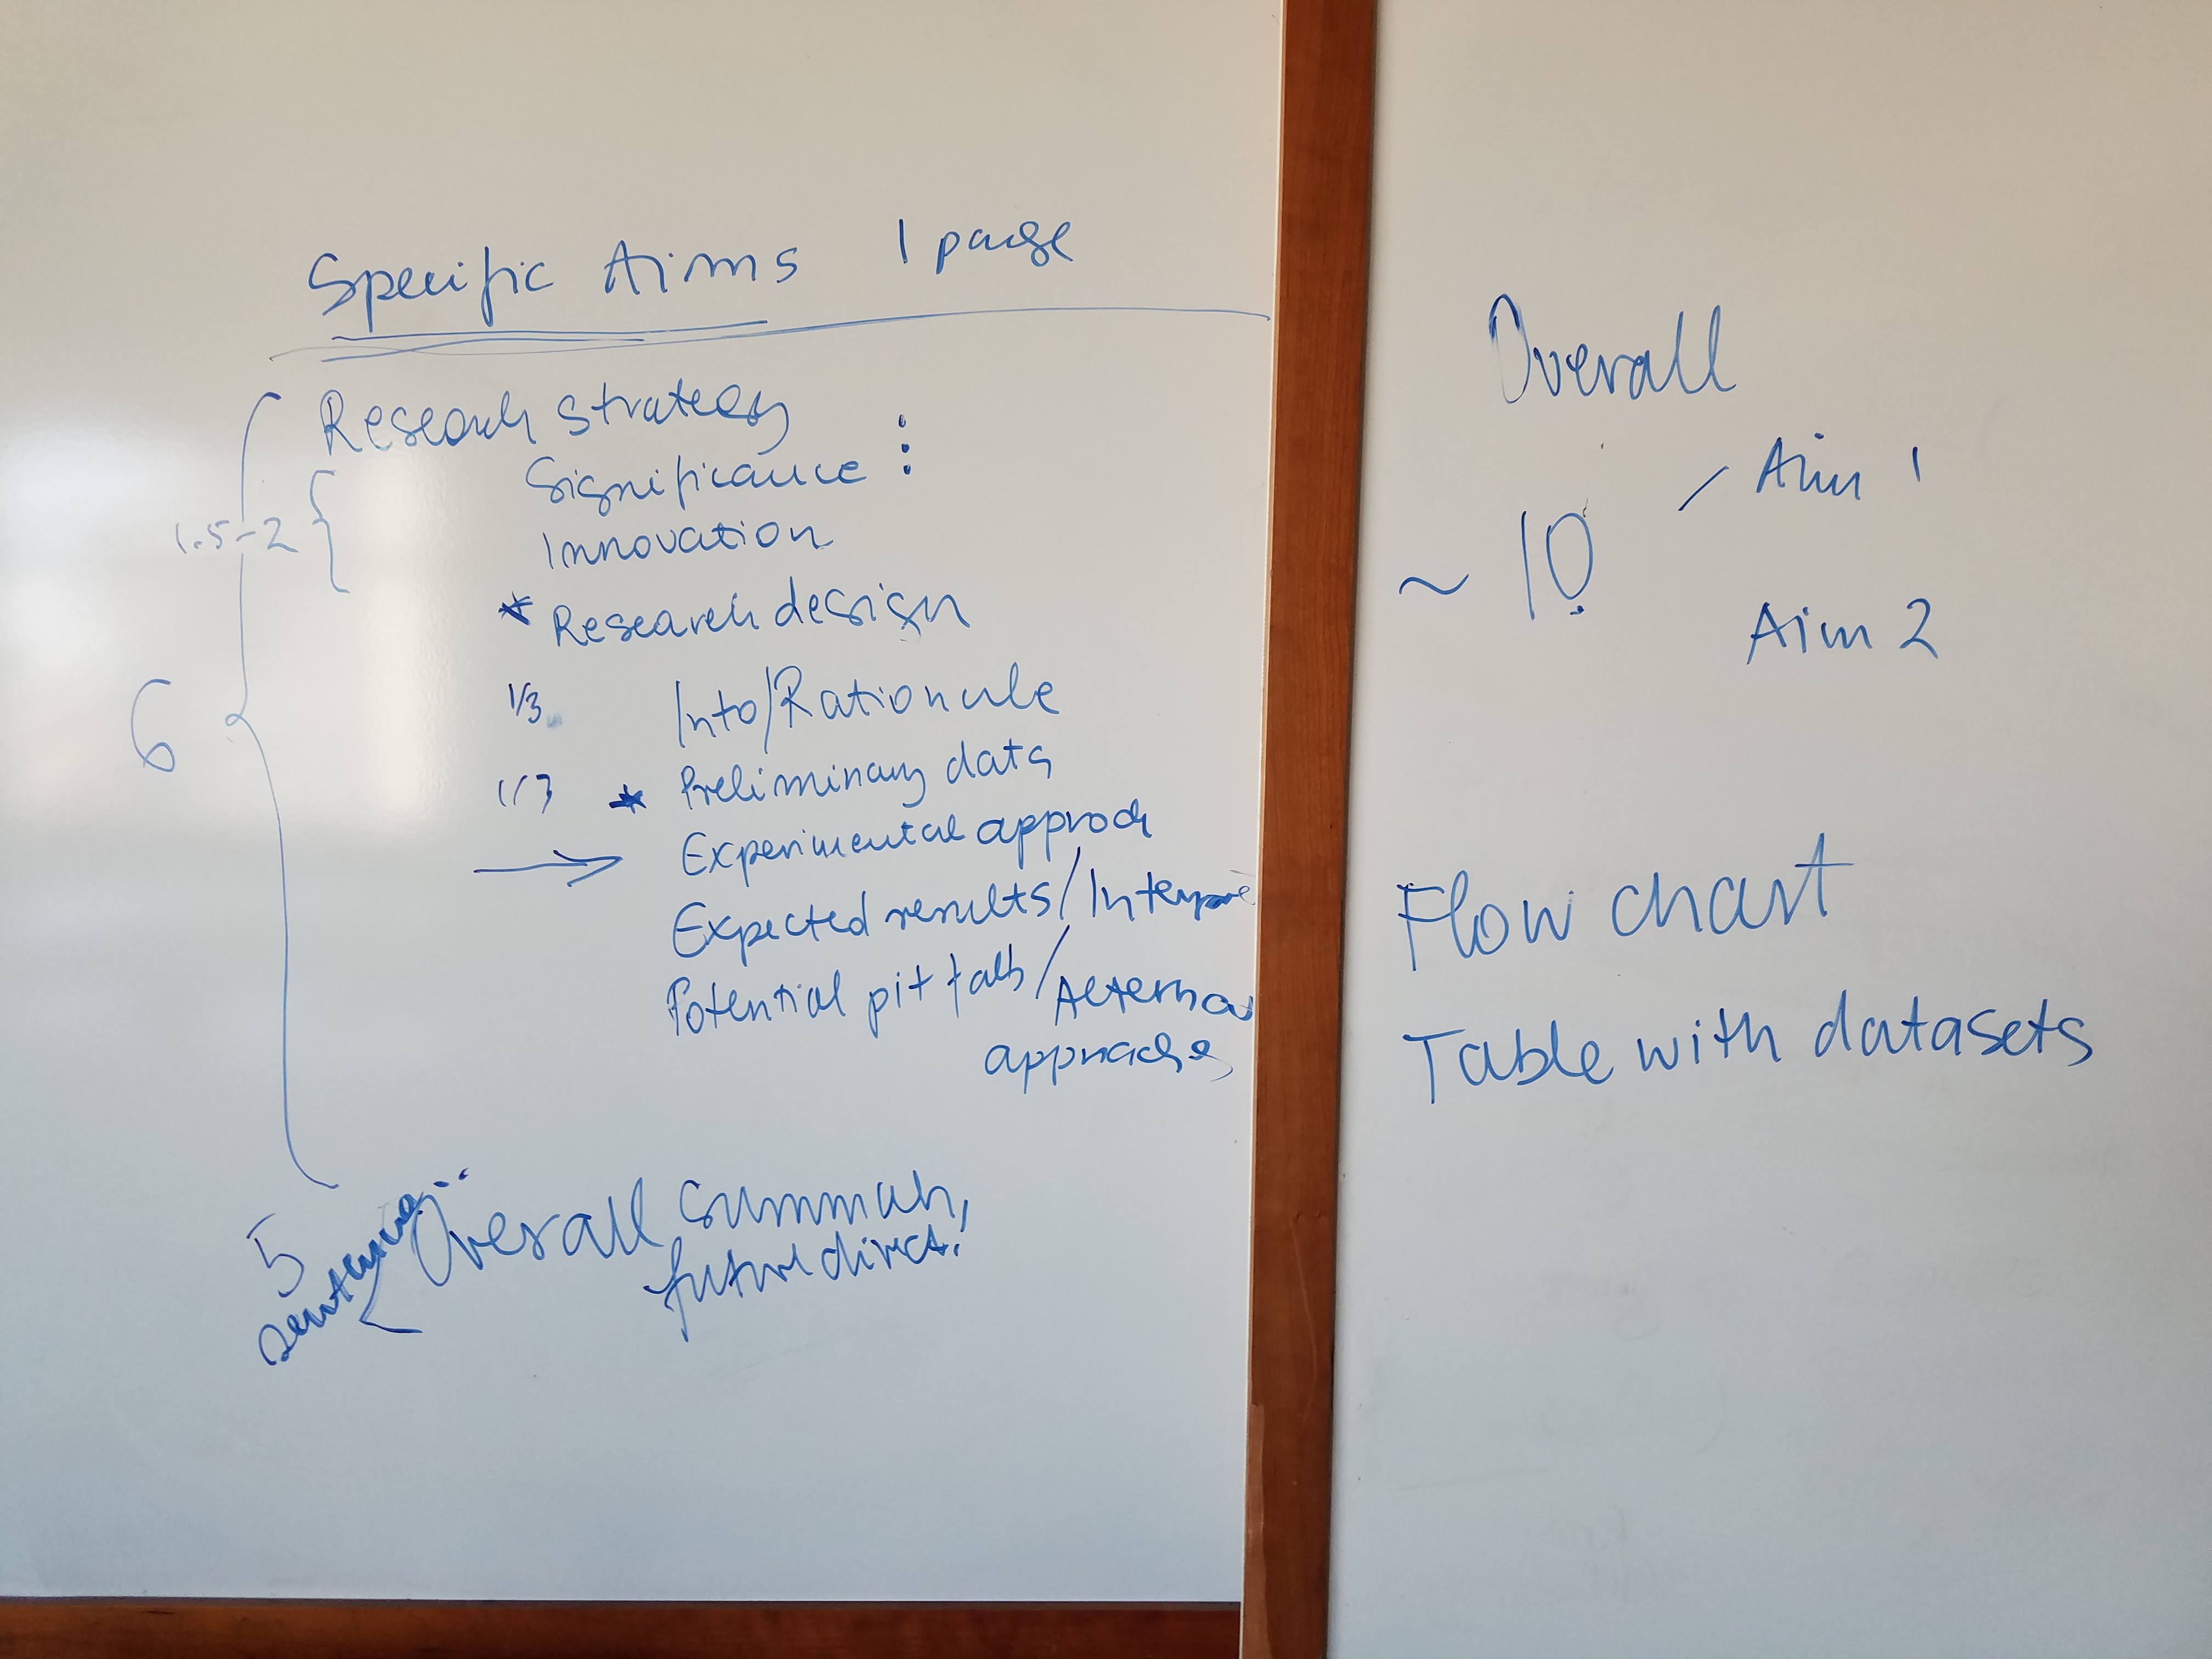 Specific Aims 1 page
Research strategy
1.5-2
Significance :
Innovation
* Research design
6
1/3 Into/Rationale
1/3 * Preliminary data
→ Experimental approch
Expected results/Interpre
Potential pit falls/Alternat
approaches
5
sentences
Overall summary,
future direct.
Overall
~ 10
Aim 1
Aim 2
Flow chart
Table with datasets